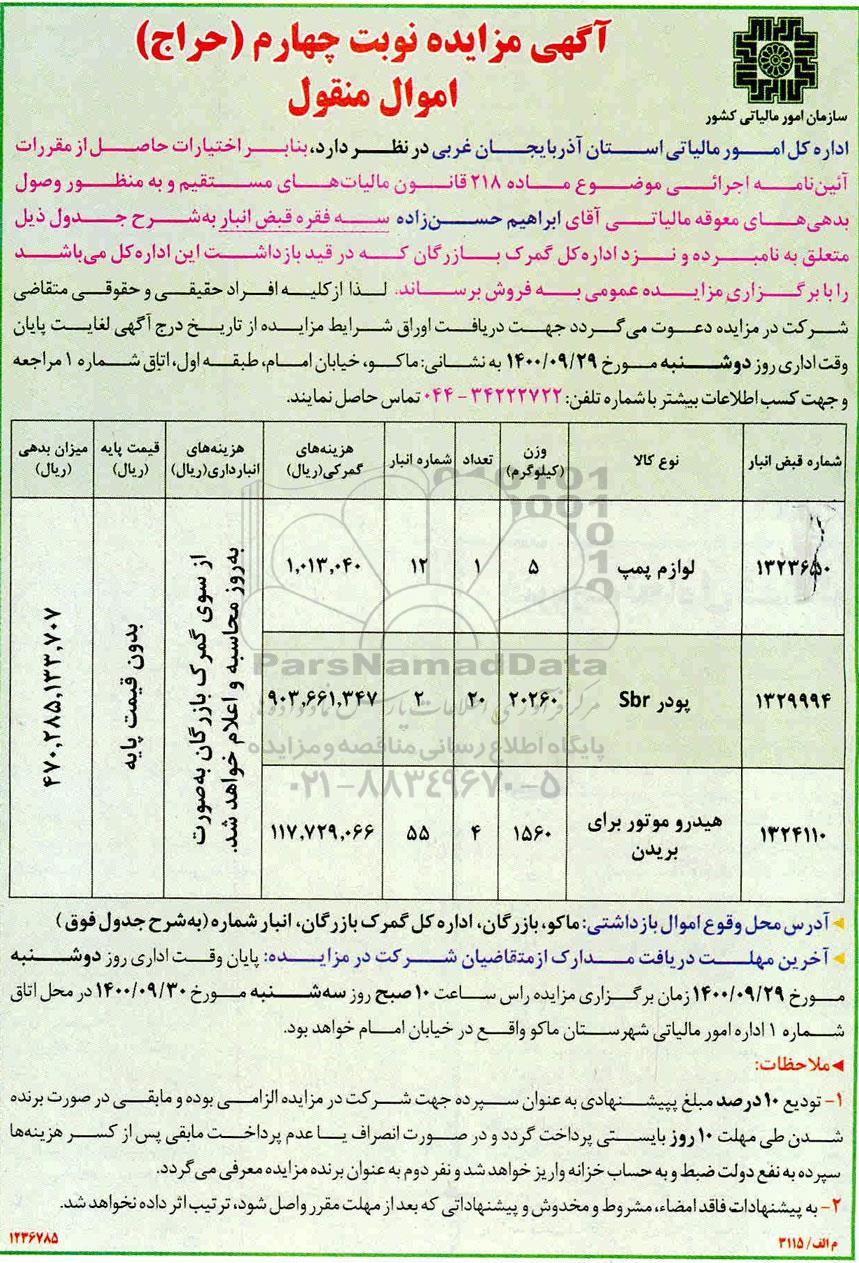 آگهی مزایده نوبت چهارم (حراج)
اموال منقول
سازمان امور مالیاتی کشور
اداره کل امور مالیاتی استان آذربایجان غربی در نظر دارد، بنابر اختیارات حاصل از مقررات
آئین‌نامه اجرائی موضوع ماده ۲۱۸ قانون مالیات‌های مستقیم و به منظور وصول
بدهی‌های معوقه مالیاتی آقای ابراهیم حسن‌زاده سه فقره قبض انبار به‌شرح جدول ذیل
متعلق به نامبرده و نزد اداره‌کل گمرک بازرگان که در قید بازداشت این اداره‌کل می‌باشد
را با برگزاری مزایده عمومی به فروش برساند. لذا از کلیه افراد حقیقی و حقوقی متقاضی
شرکت در مزایده دعوت می‌گردد جهت دریافت اوراق شرایط مزایده از تاریخ درج آگهی لغایت پایان
وقت اداری روز دوشنبه مورخ ۱۴۰۰/۰۹/۲۹ به نشانی: ماکو، خیابان امام، طبقه اول، اتاق شماره ۱ مراجعه
و جهت کسب اطلاعات بیشتر با شماره تلفن: ۳۴۲۲۲۷۲۲ - ۰۴۴ تماس حاصل نمایند.
شماره قبض انبار | نوع کالا | وزن (کیلوگرم) | تعداد | شماره انبار | هزینه‌های گمرکی(ریال) | هزینه‌های انبارداری(ریال) | قیمت پایه (ریال) | میزان بدهی (ریال)
۱۳۲۳۶۵۰ | لوازم پمپ | ۵ | ۱ | ۱۲ | ۱,۰۱۳,۰۴۰
۱۳۲۹۹۹۴ | پودر Sbr | ۲۰۲۶۰ | ۲۰ | ۲ | ۹۰۳,۶۶۱,۳۴۷
۱۳۲۴۱۱۰ | هیدرو موتور برای بریدن | ۱۵۶۰ | ۴ | ۵۵ | ۱۱۷,۷۲۹,۰۶۶
از سوی گمرک بازرگان به‌صورت
به‌روز محاسبه و اعلام خواهد شد.
بدون قیمت پایه
۴۷۰,۲۸۵,۱۳۳,۷۰۷
ParsNamadData
مرکز فرآوری اطلاعات پارس نماد داده ها
پایگاه اطلاع رسانی مناقصه و مزایده
۰۲۱-۸۸۳۴۹۶۷۰-۵
آدرس محل وقوع اموال بازداشتی: ماکو، بازرگان، اداره کل گمرک بازرگان، انبار شماره (به‌شرح جدول فوق)
آخرین مهلت دریافت مدارک از متقاضیان شرکت در مزایده: پایان وقت اداری روز دوشنبه
مورخ ۱۴۰۰/۰۹/۲۹ زمان برگزاری مزایده راس ساعت ۱۰ صبح روز سه‌شنبه مورخ ۱۴۰۰/۰۹/۳۰ در محل اتاق
شماره ۱ اداره امور مالیاتی شهرستان ماکو واقع در خیابان امام خواهد بود.
ملاحظات:
۱- تودیع ۱۰ درصد مبلغ پیشنهادی به عنوان سپرده جهت شرکت در مزایده الزامی بوده و مابقی در صورت برنده
شدن طی مهلت ۱۰ روز بایستی پرداخت گردد و در صورت انصراف یا عدم پرداخت مابقی پس از کسر هزینه‌ها
سپرده به نفع دولت ضبط و به حساب خزانه واریز خواهد شد و نفر دوم به عنوان برنده مزایده معرفی می‌گردد.
۲- به پیشنهادات فاقد امضاء، مشروط و مخدوش و پیشنهاداتی که بعد از مهلت مقرر واصل شود، ترتیب اثر داده نخواهد شد.
م الف/ ۳۱۱۵
۱۲۳۶۷۸۵